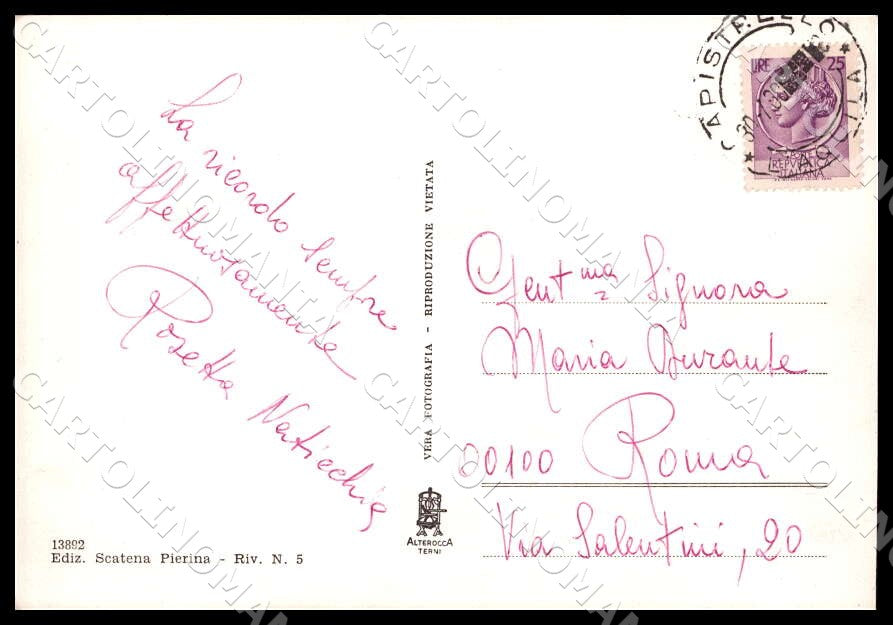 La ricordo sempre
affettuosamente
Rosetta
VERA FOTOGRAFIA - RIPRODUZIONE VIETATA
CAPISTRELLO
L'AQUILA
LIRE 25
REPVBBLICA
ITALIANA
Gent.ma Signora
Maria Durante
00100 Roma
Via Salentini, 20
13892
Ediz. Scatena Pierina - Riv. N. 5
ALTEROCCA
TERNI
CARTOLINOMANIA